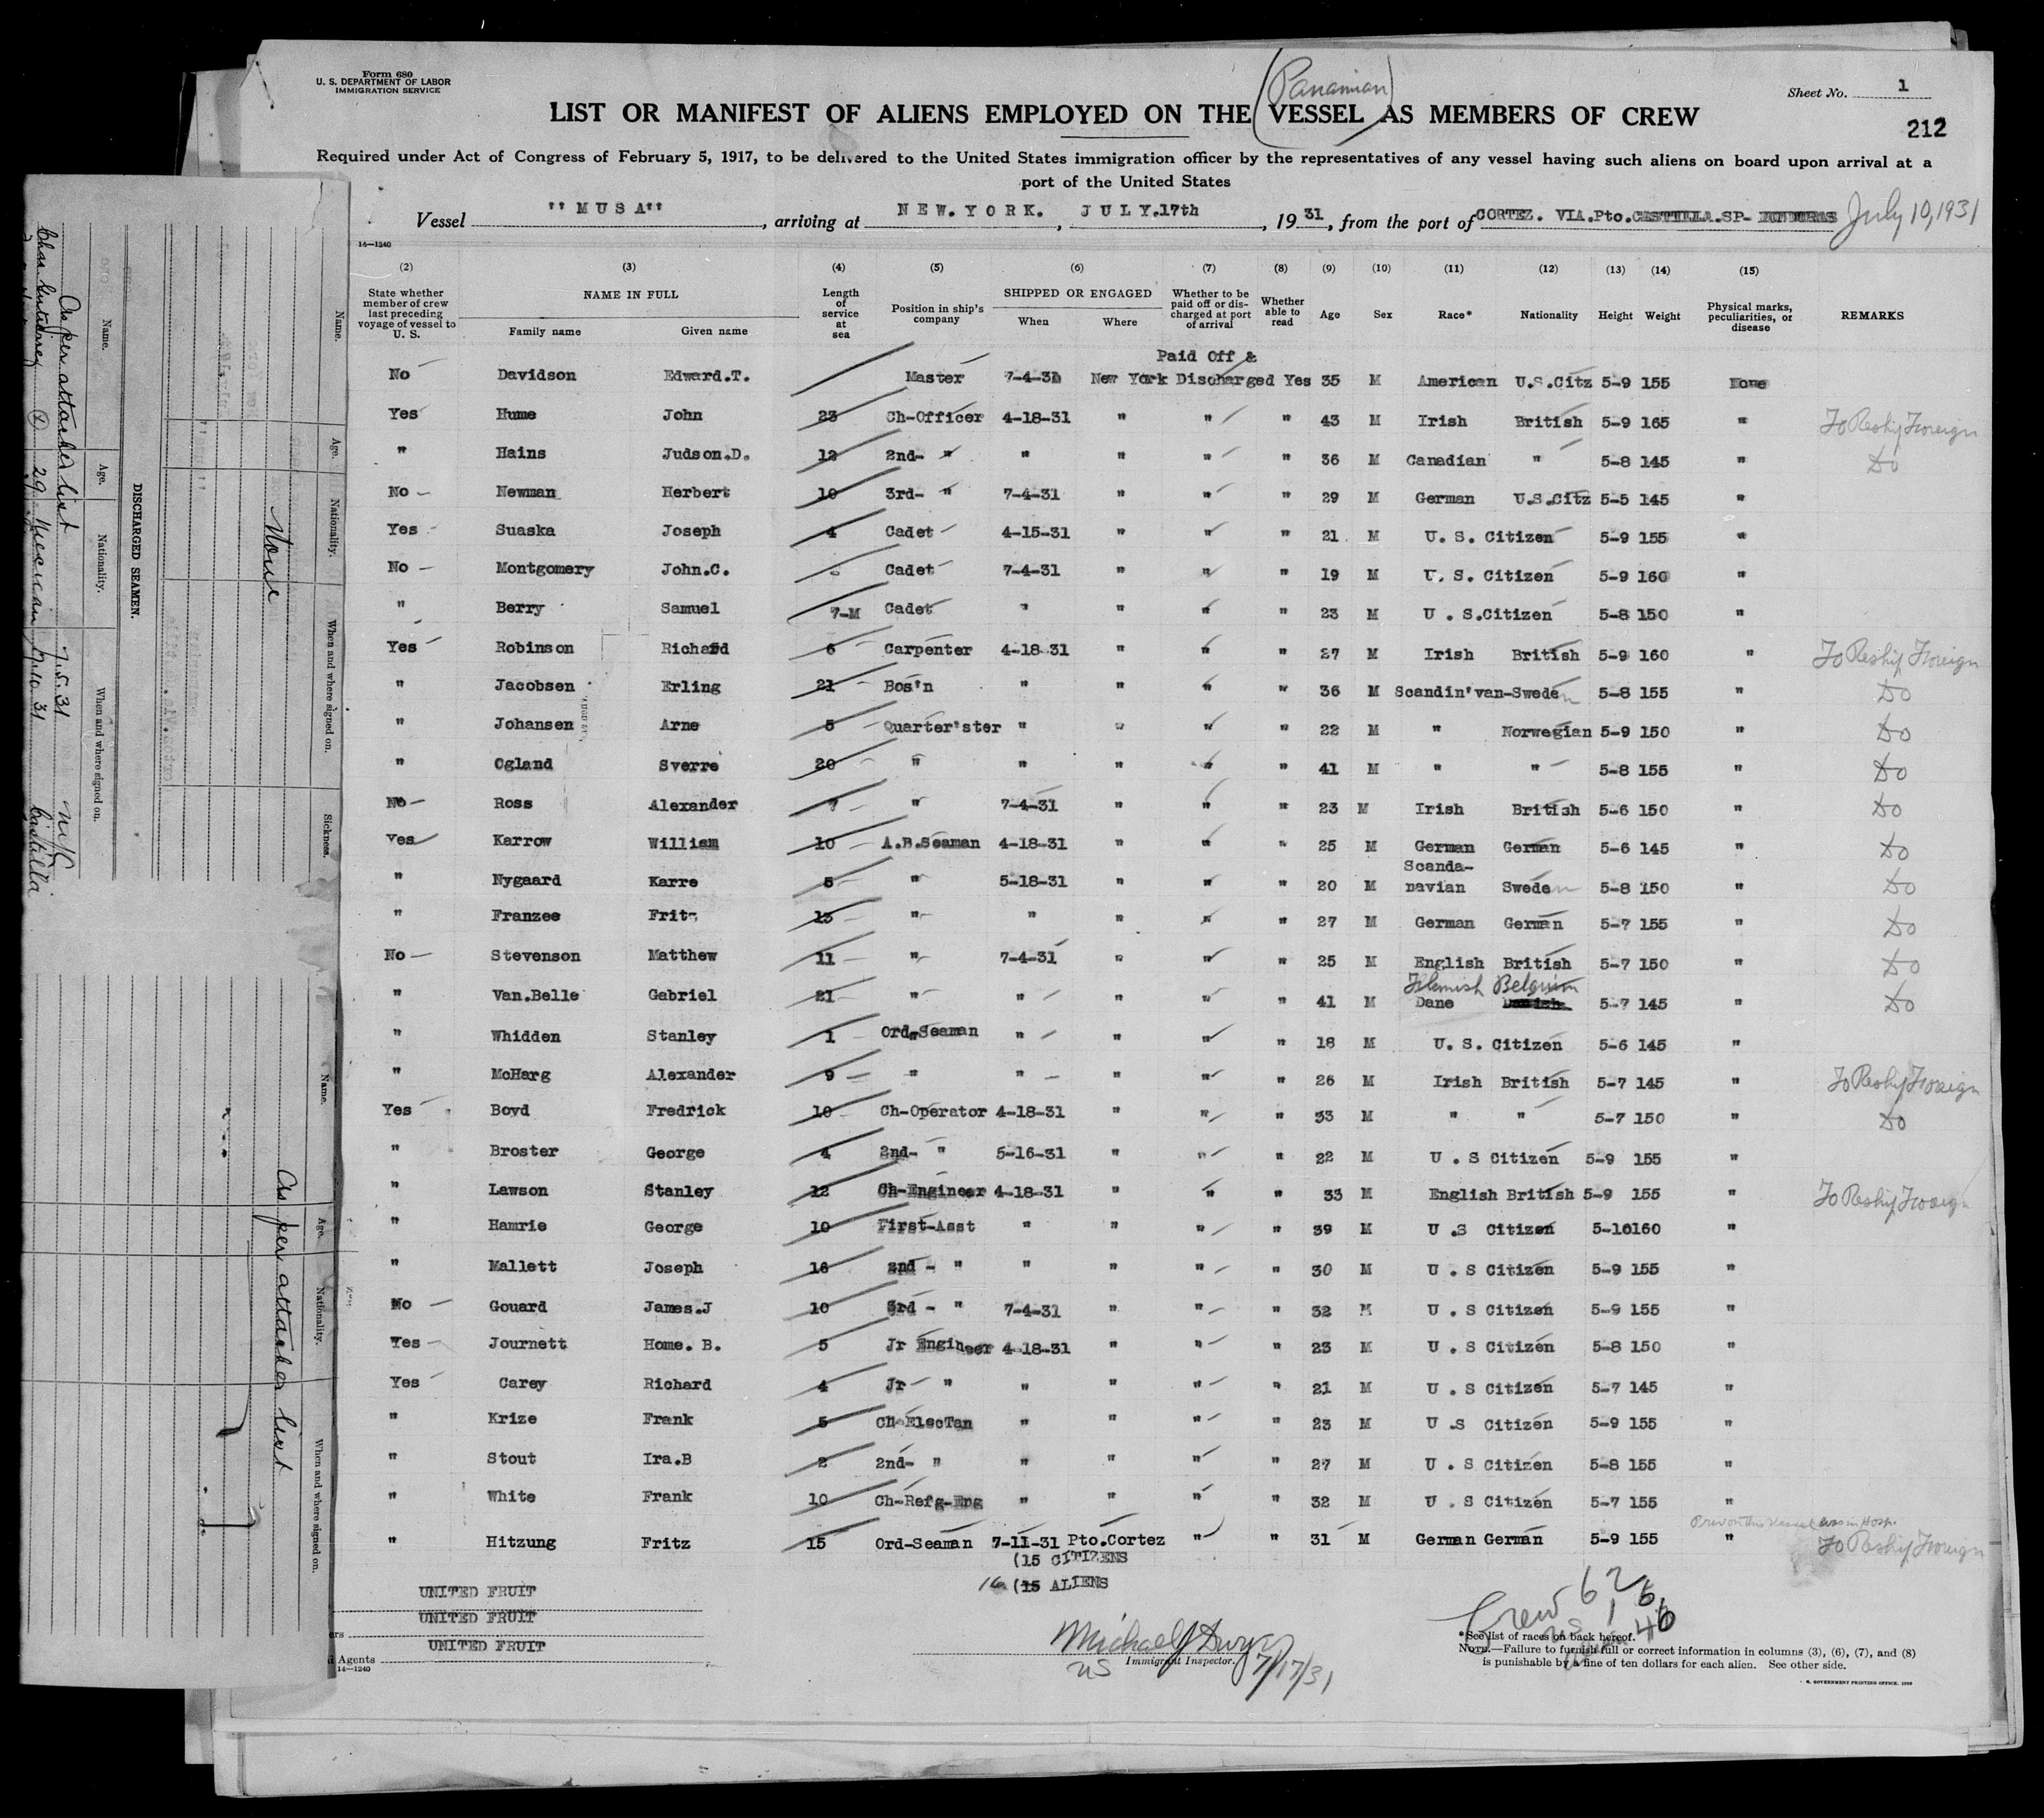 Form 680
U. S. DEPARTMENT OF LABOR
IMMIGRATION SERVICE
(Panamian)
Sheet No. 1
LIST OR MANIFEST OF ALIENS EMPLOYED ON THE VESSEL AS MEMBERS OF CREW
212
Required under Act of Congress of February 5, 1917, to be delivered to the United States immigration officer by the representatives of any vessel having such aliens on board upon arrival at a
port of the United States
Vessel "MUSA", arriving at NEW.YORK. JULY.17th, 1931, from the port of CORTEZ. VIA.Pto.CASTILLA.SP- HONDURAS July 10, 1931
14—1240
(2) (3) (4) (5) (6) (7) (8) (9) (10) (11) (12) (13) (14) (15)
State whether member of crew last preceding voyage of vessel to U. S. NAME IN FULL Family name Given name Length of service at sea Position in ship's company SHIPPED OR ENGAGED When Where Whether to be paid off or discharged at port of arrival Whether able to read Age Sex Race* Nationality Height Weight Physical marks, peculiarities, or disease REMARKS
Paid Off &
No Davidson Edward.T. Master 7-4-31 New York Discharged Yes 35 M American U.S.Citz 5-9 155 None
Yes Hume John 23 Ch-Officer 4-18-31 " " " 43 M Irish British 5-9 165 " To Reship Foreign
" Hains Judson.D. 12 2nd- " " " " " 36 M Canadian " 5-8 145 " Do
No Newman Herbert 10 3rd- " 7-4-31 " " " 29 M German U.S.Citz 5-5 145 "
Yes Suaska Joseph 4 Cadet 4-15-31 " " " 21 M U. S. Citizen 5-9 155 "
No Montgomery John.C. Cadet 7-4-31 " " " 19 M U. S. Citizen 5-9 160 "
" Berry Samuel 7-M Cadet " " " " 23 M U . S.Citizen 5-8 150 "
Yes Robinson Richard 6 Carpenter 4-18-31 " " " 27 M Irish British 5-9 160 " To Reship Foreign
" Jacobsen Erling 21 Bos'n " " " " 36 M Scandin'van-Sweden 5-8 155 " Do
" Johansen Arne 5 Quarter'ster " " " " 22 M " Norwegian 5-9 150 " Do
" Ogland Sverre 20 " " " " " 41 M " " 5-8 155 " Do
No Ross Alexander 7 " 7-4-31 " " " 23 M Irish British 5-6 150 " Do
Yes Karrow William 10 A.B.Seaman 4-18-31 " " " 25 M German German 5-6 145 " Do
" Nygaard Karre 5 " 5-18-31 " " " 20 M Scanda-navian Sweden 5-8 150 " Do
" Franzee Fritz 13 " " " " " 27 M German German 5-7 155 " Do
No Stevenson Matthew 11 " 7-4-31 " " " 25 M English British 5-7 150 " Do
Flemish Belgium
" Van.Belle Gabriel 21 " " " " " 41 M Dane Danish 5-7 145 " Do
" Whidden Stanley 1 Ord-Seaman " " " " 18 M U. S. Citizen 5-6 145 "
" McHarg Alexander 9 " " " " " 26 M Irish British 5-7 145 " To Reship Foreign
Yes Boyd Fredrick 10 Ch-Operator 4-18-31 " " " 33 M " " 5-7 150 " Do
" Broster George 4 2nd- " 5-16-31 " " " 22 M U . S Citizen 5-9 155 "
" Lawson Stanley 12 Ch-Engineer 4-18-31 " " " 33 M English British 5-9 155 " To Reship Foreign
" Hamrie George 10 First-Asst " " " " 39 M U .S Citizen 5-10 160 "
" Mallett Joseph 16 2nd - " " " " " 30 M U . S Citizen 5-9 155 "
No Gouard James.J 10 3rd - " 7-4-31 " " " 32 M U . S Citizen 5-9 155 "
Yes Journett Home. B. 5 Jr Engineer 4-18-31 " " " 23 M U . S Citizen 5-8 150 "
Yes Carey Richard 4 Jr " " " " " 21 M U . S Citizen 5-7 145 "
" Krize Frank 5 Ch-ElecTan " " " " 23 M U .S Citizen 5-9 155 "
" Stout Ira.B 2 2nd- " " " " " 27 M U . S Citizen 5-8 155 "
" White Frank 10 Ch-Refg-Eng " " " " 32 M U . S Citizen 5-7 155 "
" Hitzung Fritz 15 Ord-Seaman 7-11-31 Pto.Cortez " " 31 M German German 5-9 155 " To Reship Foreign
(15 CITIZENS
16 (15 ALIENS
UNITED FRUIT
UNITED FRUIT
UNITED FRUIT
Agents
14—1240
Immigrant Inspector. 7/17/31
US
Crew 62
*See list of races on back hereof.
NOTE.—Failure to furnish full or correct information in columns (3), (6), (7), and (8)
is punishable by a fine of ten dollars for each alien. See other side.
GOVERNMENT PRINTING OFFICE
Name. Age. Nationality. When and where signed on. Sickness.
None
DISCHARGED SEAMEN.
Name. Age. Nationality. When and where signed on.
As per attached list 7.5.31 N.Y.
29 Mexican 7.10.31 Castilla
Name. Age. Nationality. When and where signed on.
As per attached list